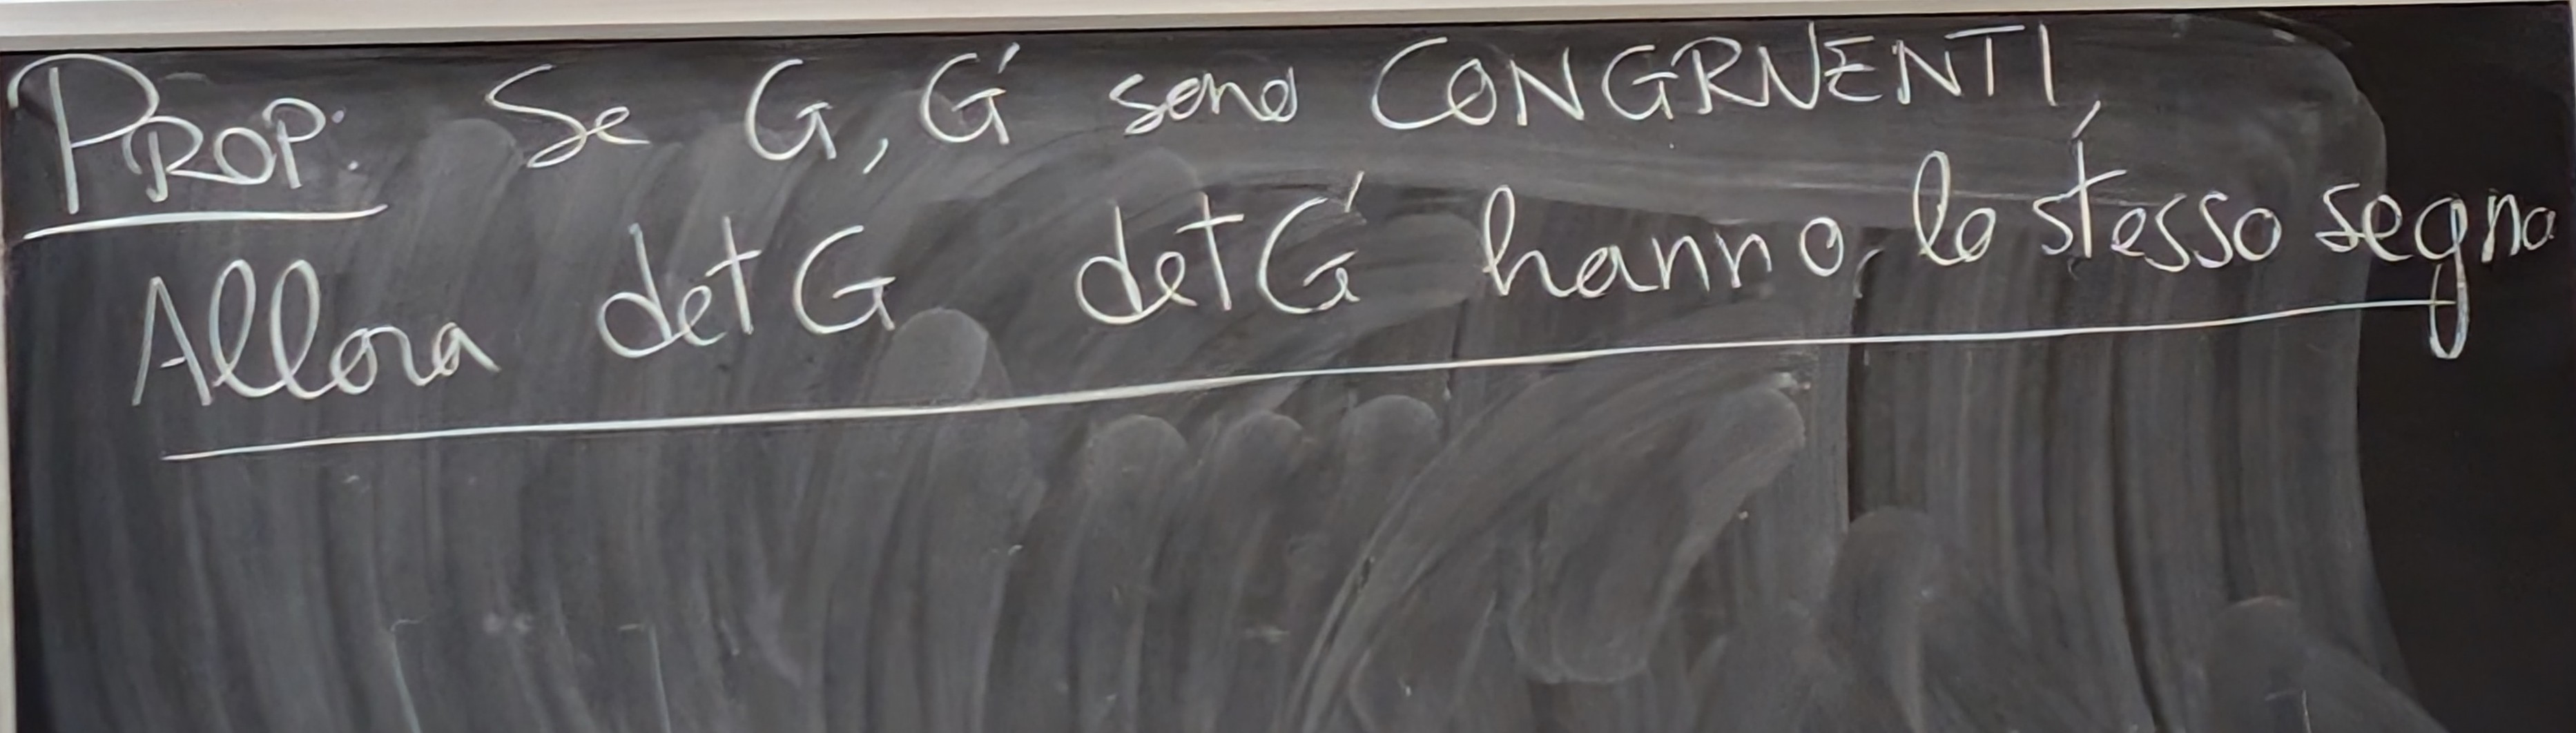 PROP: Se G, G' sono CONGRUENTI,
Allora det G det G' hanno lo stesso segno